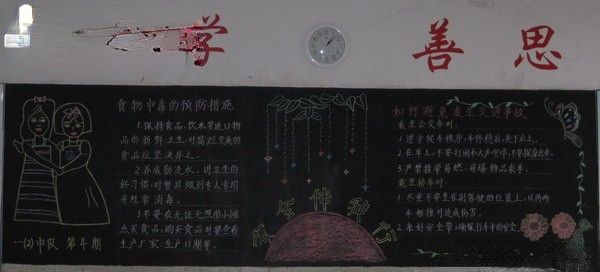 学 善思
食物中毒的预防措施
1.保持食品、饮水等进口物
品的新鲜卫生,对腐烂变质的
食品应坚决弃之。
2.养成勤洗水、讲卫生的
好习惯,对餐具做到专人专用
并经常消毒。
3.不要在无证无照的小摊
点买食品,购买食品时要查看
生产厂家、生产日期等。
一(2)中队 第4期
安全伴我行
如何避免发生交通事故
乘坐公交车时:
1.遵守候车秩序,车停稳后,先下后上。
2.在车上,不要打闹和大声喧哗,不要探身出车。
3.严禁携带易燃、易爆物品乘车。
乘坐轿车时:
1.不坐不要坐在副驾驶的位置上,以防两
车相撞时造成伤害。
2.系好安全带,确保行车中的安全。